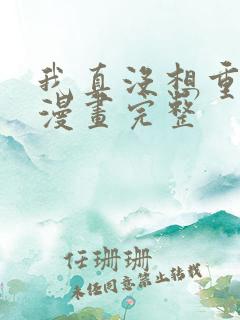 我真没想重
漫畫完整
任珊珊
未经同意禁止转载